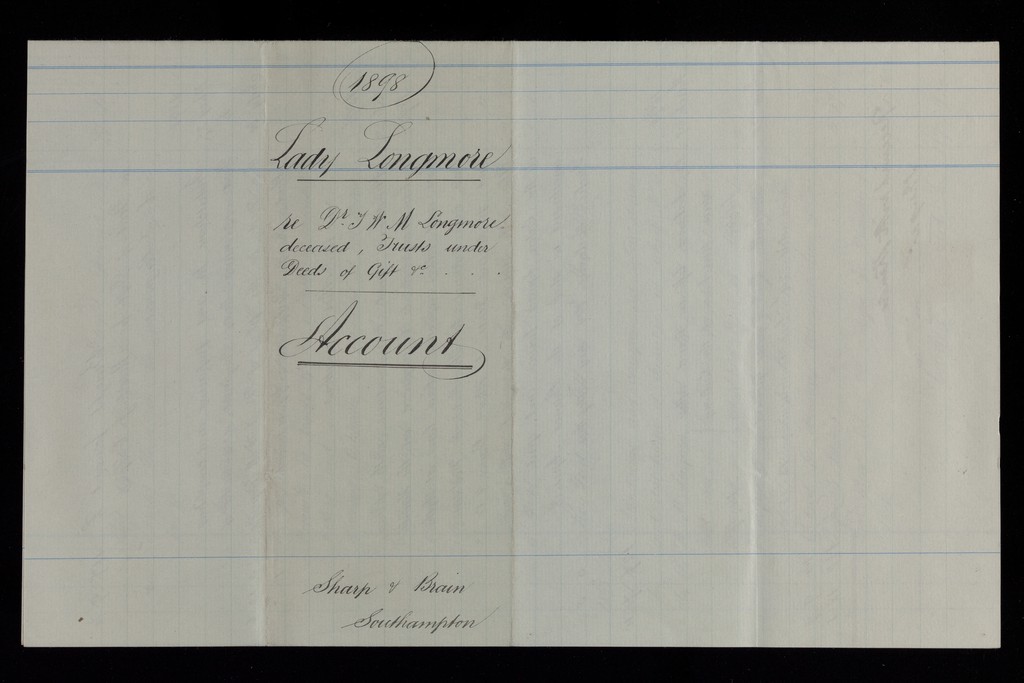 1898
Lady Longmore
re Dr. T W M Longmore
deceased, Trusts under
Deeds of Gift &c. . . .
Account
Sharp & Brain
Southampton